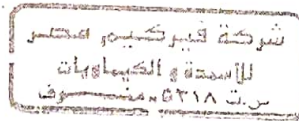 شركة فيركيم مصر
للأسمدة و الكيماويات
س.ت ٥٣١٨ منوف